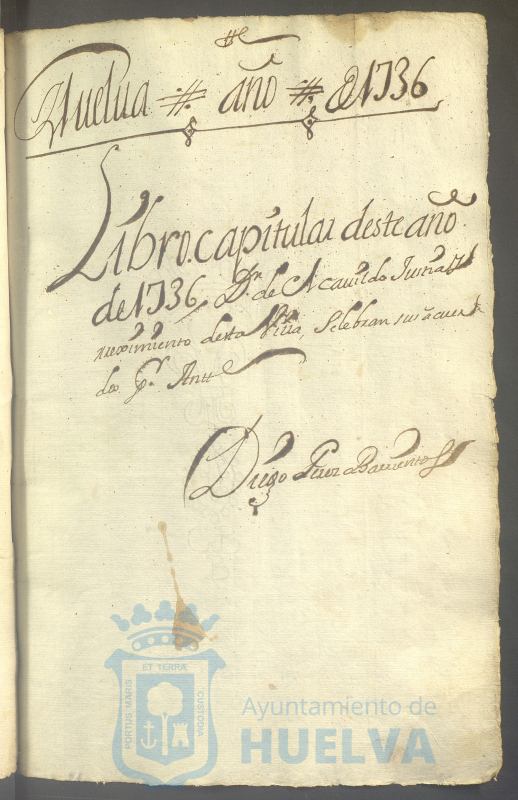 Huelua # año # de 1736
Libro capitular deste año
de 1736, de el Cauildo Justiçia
reximiento desta Villa, Selebran sus acuer
dos Pr. Antt
Diego Perez de Barrientos
ET TERRÆ
PORTUS MARIS
CUSTODIA
Ayuntamiento de
HUELVA